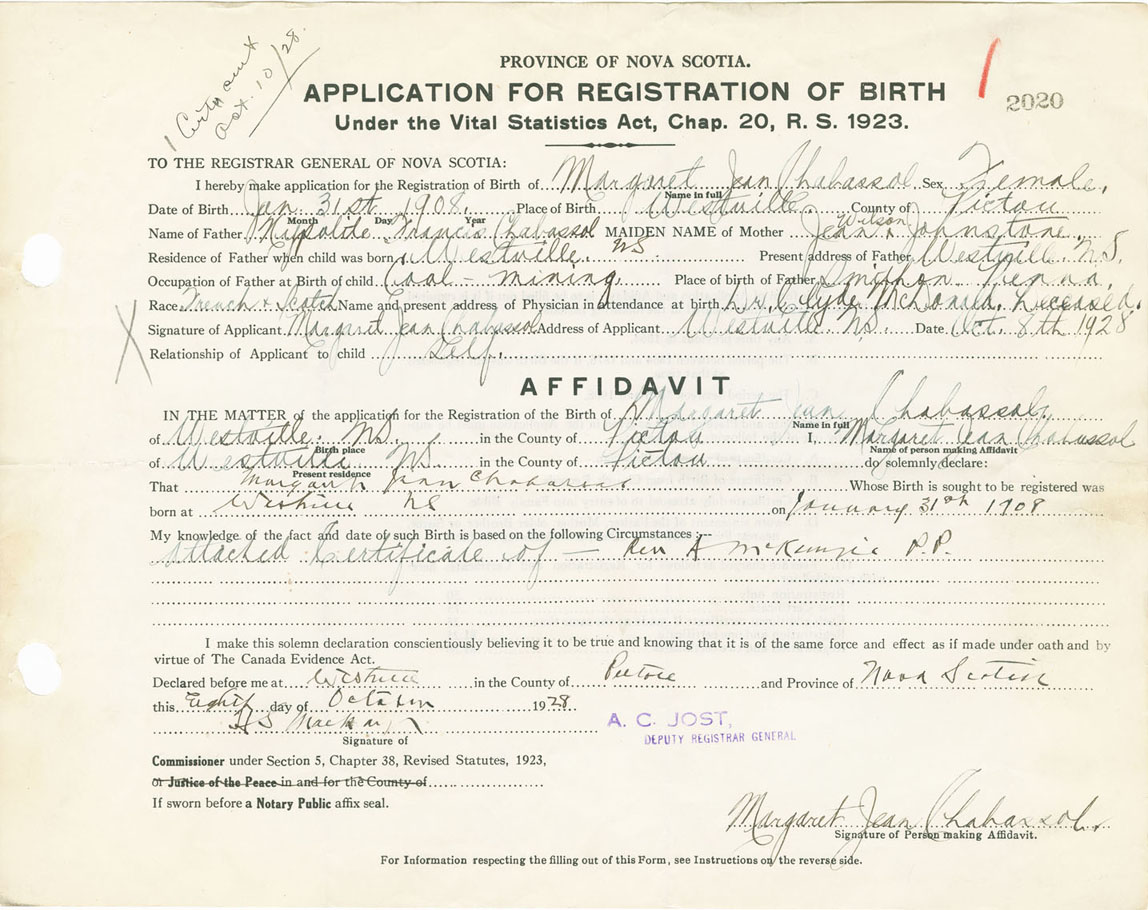 1 Cert. sent
Oct. 10/28.
PROVINCE OF NOVA SCOTIA.
APPLICATION FOR REGISTRATION OF BIRTH
2020
Under the Vital Statistics Act, Chap. 20, R. S. 1923.
TO THE REGISTRAR GENERAL OF NOVA SCOTIA:
I hereby make application for the Registration of Birth of Margaret Jean Chabassol Sex Female.
Name in full
Date of Birth Jan. 31st. 1908. Place of Birth Westville. County of Pictou
Month Day Year
Name of Father Hippolite Francis Chabassol MAIDEN NAME of Mother Jean Wilson Johnstone.
Residence of Father when child was born Westville. NS. Present address of Father Westville N.S.
Occupation of Father at Birth of child Coal - mining Place of birth of Father Penna.
Race French & Scotch Name and present address of Physician in attendance at birth Dr. Clyde McDonald. Deceased.
X Signature of Applicant Margaret Jean Chabassol Address of Applicant Westville. N.S. Date Oct. 8th 1928
Relationship of Applicant to child Self.
AFFIDAVIT
IN THE MATTER of the application for the Registration of the Birth of Margaret Jean Chabassol.
Name in full
of Westville. N.S. in the County of Pictou I, Margaret Jean Chabassol
Birth place Name of person making Affidavit
of Westville N.S. in the County of Pictou do solemnly declare:
Present residence
That Margaret Jean Chabassol Whose Birth is sought to be registered was
born at Westville NS on January 31st 1908
My knowledge of the fact and date of such Birth is based on the following Circumstances:—
Attached Certificate of - Rev A McKenzie P.P.
I make this solemn declaration conscientiously believing it to be true and knowing that it is of the same force and effect as if made under oath and by
virtue of The Canada Evidence Act.
Declared before me at Westville in the County of Pictou and Province of Nova Scotia
this Eighth day of October 1928.
A. C. JOST,
DEPUTY REGISTRAR GENERAL
Signature of
Commissioner under Section 5, Chapter 38, Revised Statutes, 1923,
or Justice of the Peace in and for the County of
If sworn before a Notary Public affix seal.
Margaret Jean Chabassol.
Signature of Person making Affidavit.
For Information respecting the filling out of this Form, see Instructions on the reverse side.